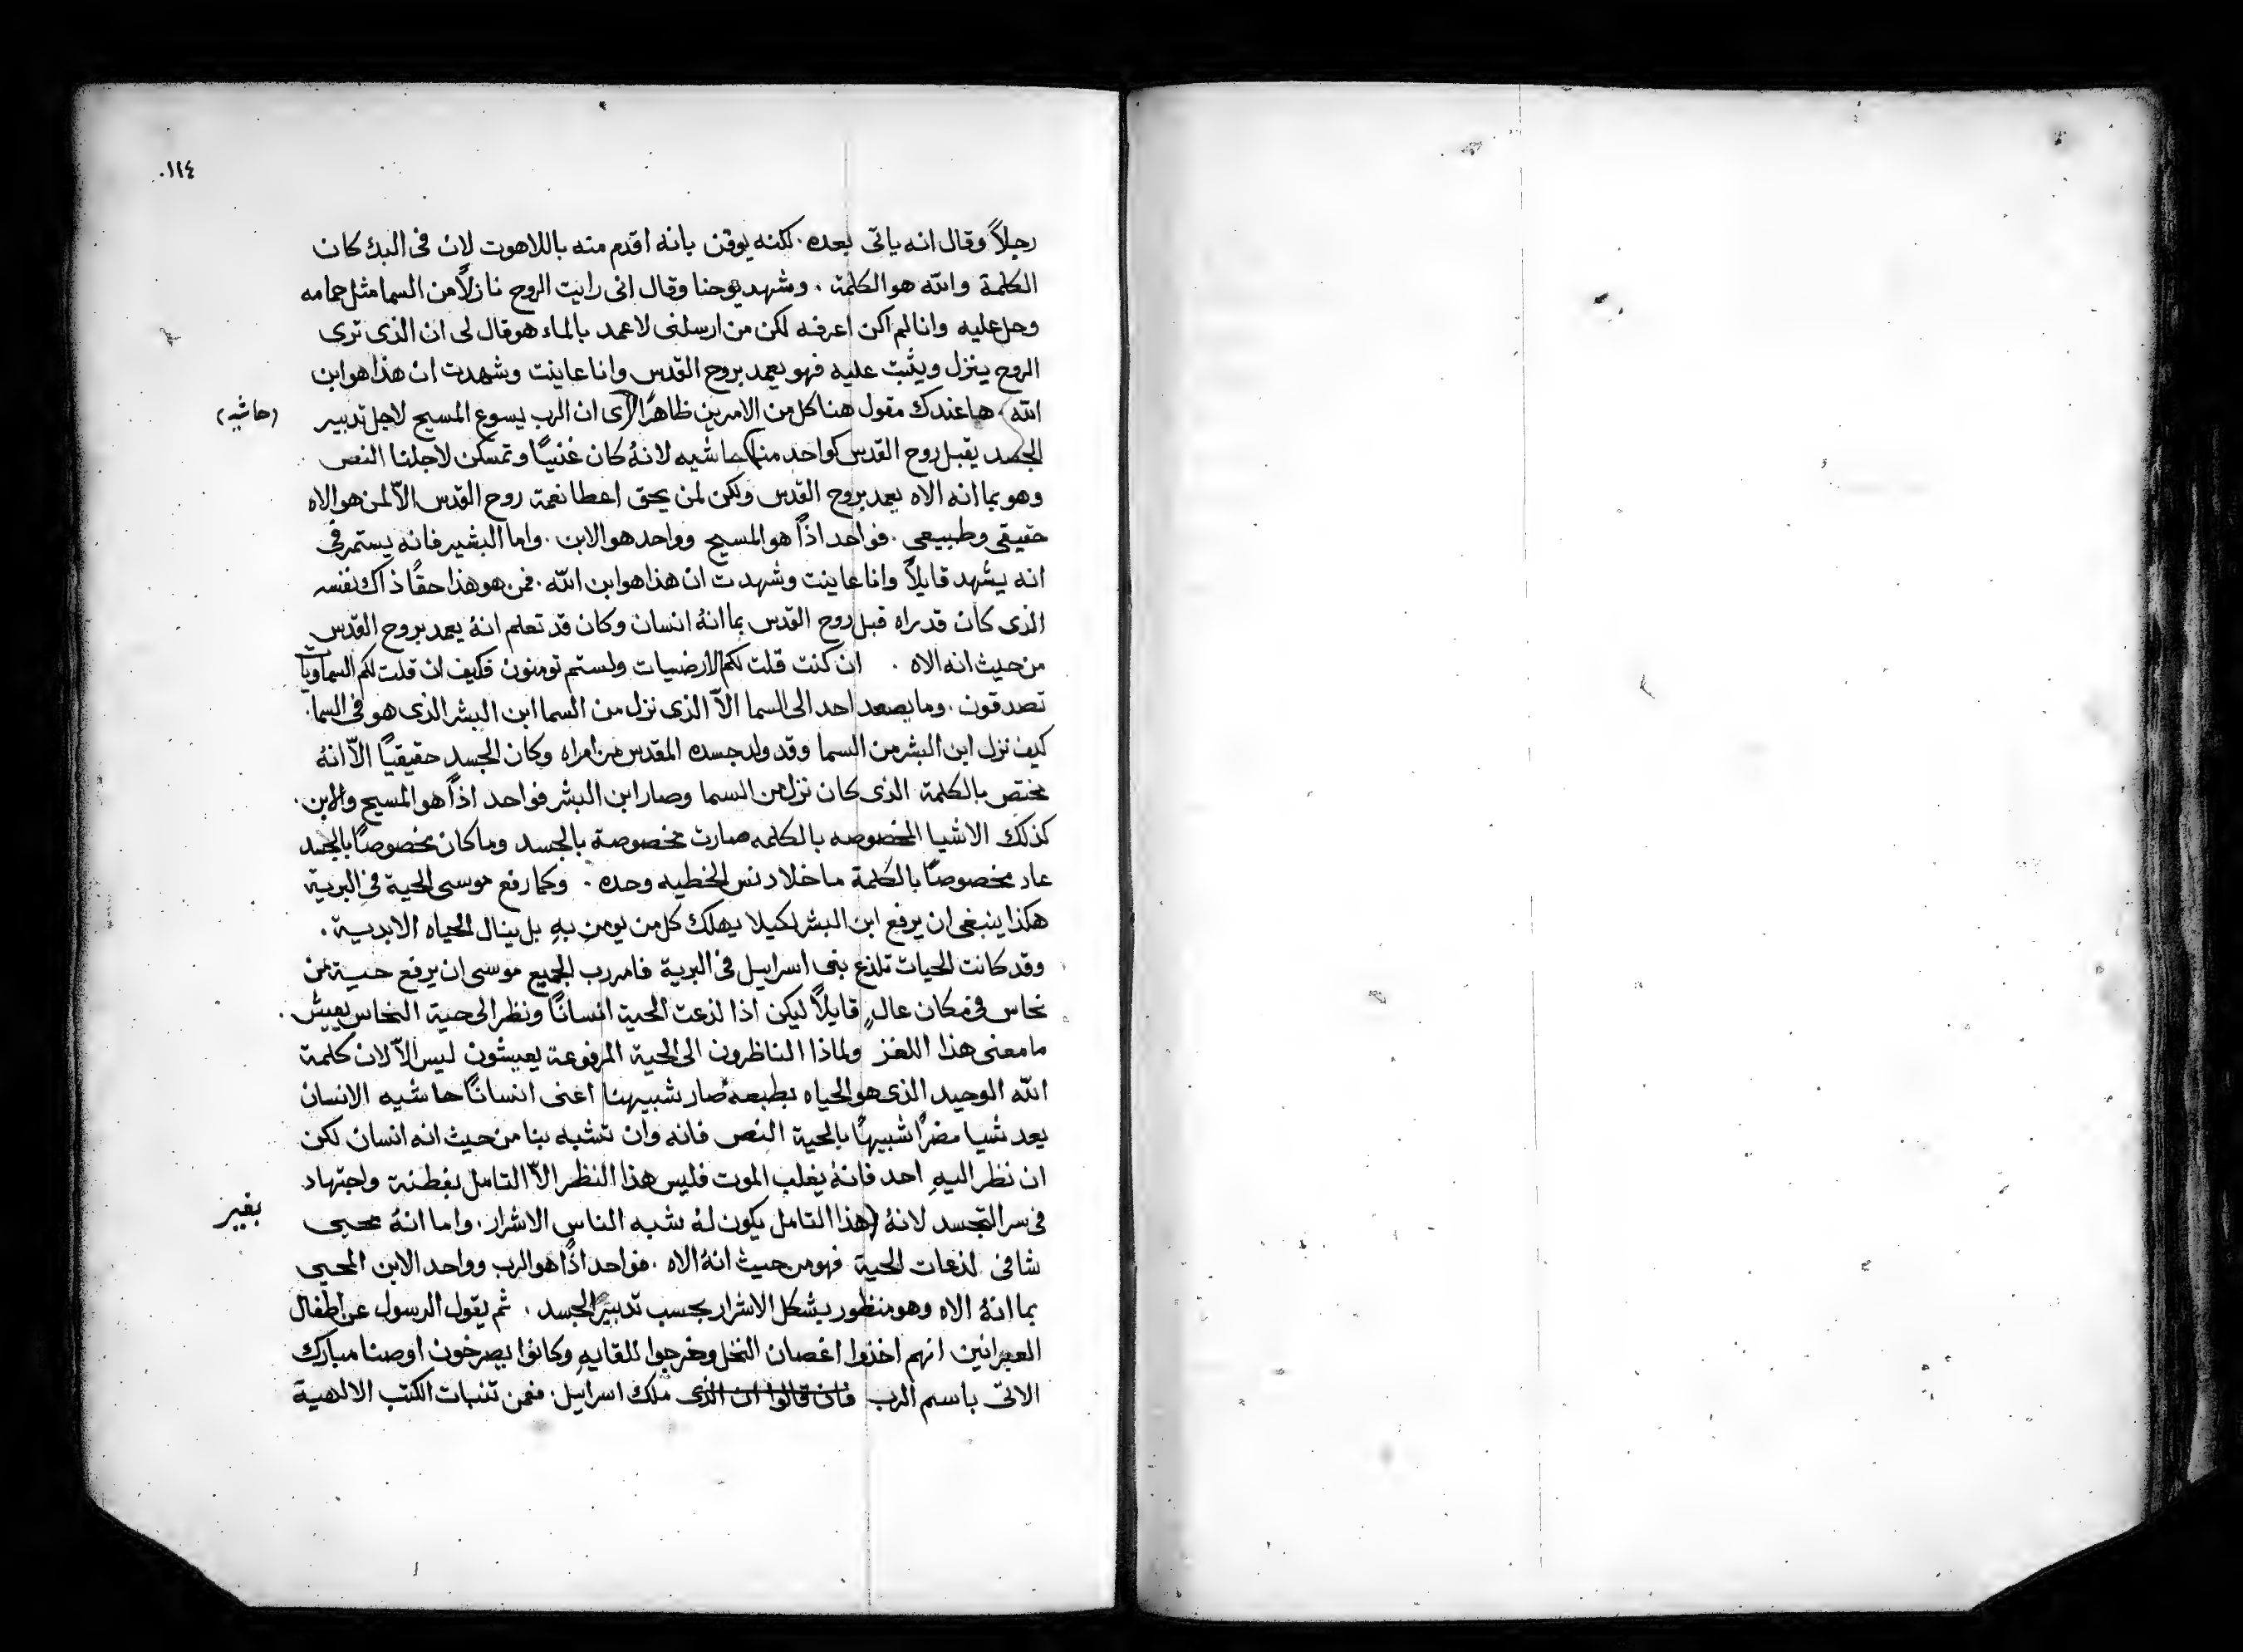 ١١٤.
رجلاً وقال انه ياتى بعده. لكنه يوقن بانه اقدم منه باللاهوت لان فى البدء كان
الكلمة والله هو الكلمة . وشهد يوحنا وقال انى رايت الروح نازلاً من السما مثل حمامه
وحل عليه وانا لم اكن اعرفه لكن من ارسلنى لاعمد بالماء هو قال لى ان الذى ترى
الروح ينزل ويثبت عليه فهو يعمد بروح القدس وانا عاينت وشهدت ان هذا هو ابن
الله . ها عندك مقول هنا كل من الامرين ظاهرًا ان الرب يسوع المسيح لاجل تدبير
(حاشيه)
الجسد يقبل روح القدس كواحد منا حاشيه لانهُ كان غنيًا وتمسكن لاجلنا النص
وهو بما انه الاه يعمد بروح القدس ولكن لمن يحق اعطا نعمة روح القدس الاّ لمن هو الاه
حقيقى وطبيعى . فواحد اذًا هو المسيح وواحد هو الابن . واما البشير فانه يستمر فى
انه يشهد قايلاً وانا عاينت وشهدت ان هذا هو ابن الله . فمن هو هذا حقًا ذاك نفسه
الذى كان قد راه قبل روح القدس بما انهُ انسان وكان قد تعلم انهُ يعمد بروح القدس
من حيث انه الاه . ان كنت قلت لكم الارضيات ولستم تومنون فكيف ان قلت لكم السماويات
تصدقون . وما يصعد احد الى السما الاّ الذى نزل من السما ابن البشر الذى هو فى السما.
كيف نزل ابن البشر من السما وقد ولد جسده المقدس من امراه وكان الجسد حقيقيًا الاّ انهُ
مختص بالكلمة الذى كان نزل من السما وصار ابن البشر فواحد اذًا هو المسيح والابن.
كذلك الاشيا المخصوصه بالكلمه صارت مخصوصة بالجسد وما كان مخصوصًا بالجسد
عاد مخصوصًا بالكلمة ما خلا دنس الخطيه وحده . وكما رفع موسى الحية فى البرية
هكذا ينبغى ان يرفع ابن البشر لكيلا يهلك كل من يومن بهِ بل ينال الحياه الابدية .
وقد كانت الحيات تلذع بنى اسراييل فى البرية فامر رب الجميع موسى ان يرفع حية من
نحاس فى مكان عالٍ قايلاً ليكن اذا لذعت الحية انسانًا ونظر الى حية النحاس يعيش .
ما معنى هذا اللغز ولماذا الناظرون الى الحية المرفوعة يعيشون ليس الاّ لان كلمة
الله الوحيد الذى هو الحياه بطبعه صار شبيهنا اعنى انسانًا حاشيه الانسان
يعد شيا مضرًا شبيهًا بالحية النص فانه وان تشبه بنا من حيث انه انسان لكن
ان نظر اليهِ احد فانهُ يغلب الموت فليس هذا النظر الاّ التامل بفطنة واجتهاد
فى سر التجسد لانهُ (هذا التامل يكون لهُ شبه الناس الاشرار . واما انهُ محيى
بغير
شافى لذعات الحية فهو من حيث انهُ الاه . فواحد اذًا هو الرب وواحد الابن المحيى
بما انهُ الاه وهو منظور بشكل الاشرار بحسب تدبير الجسد . ثم يقول الرسول عن اطفال
العبرانين انهم اخذوا اغصان النخل وخرجوا للقايهِ وكانوا يصرخون اوصنا مبارك
الاتى باسم الرب فان قالوا ان الذى ملك اسراييل . فمن تنبات الكتب الالهية